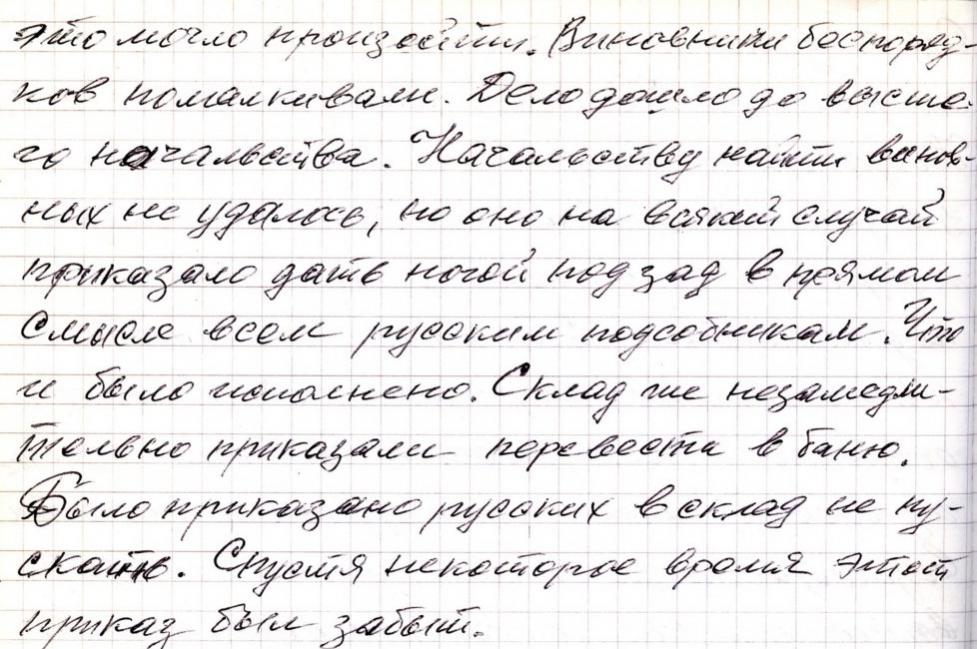 это могло произойти. Виновники беспоряд-
ков помалкивали. Дело дошло до высше-
го начальства. Начальству найти винов-
ных не удалось, но оно на всякий случай
приказало дать ногой под зад в прямом
смысле всем русским подсобникам. Что
и было исполнено. Склад же незамедли-
тельно приказали перевести в баню.
Было приказано русских в склад не пу-
скать. Спустя некоторое время этот
приказ был забыт.